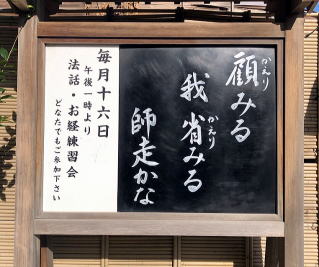 顧みる
かえり
我省みる
かえり
師走かな
毎月十六日
午後一時より
法話・お経練習会
どなたでもご参加下さい